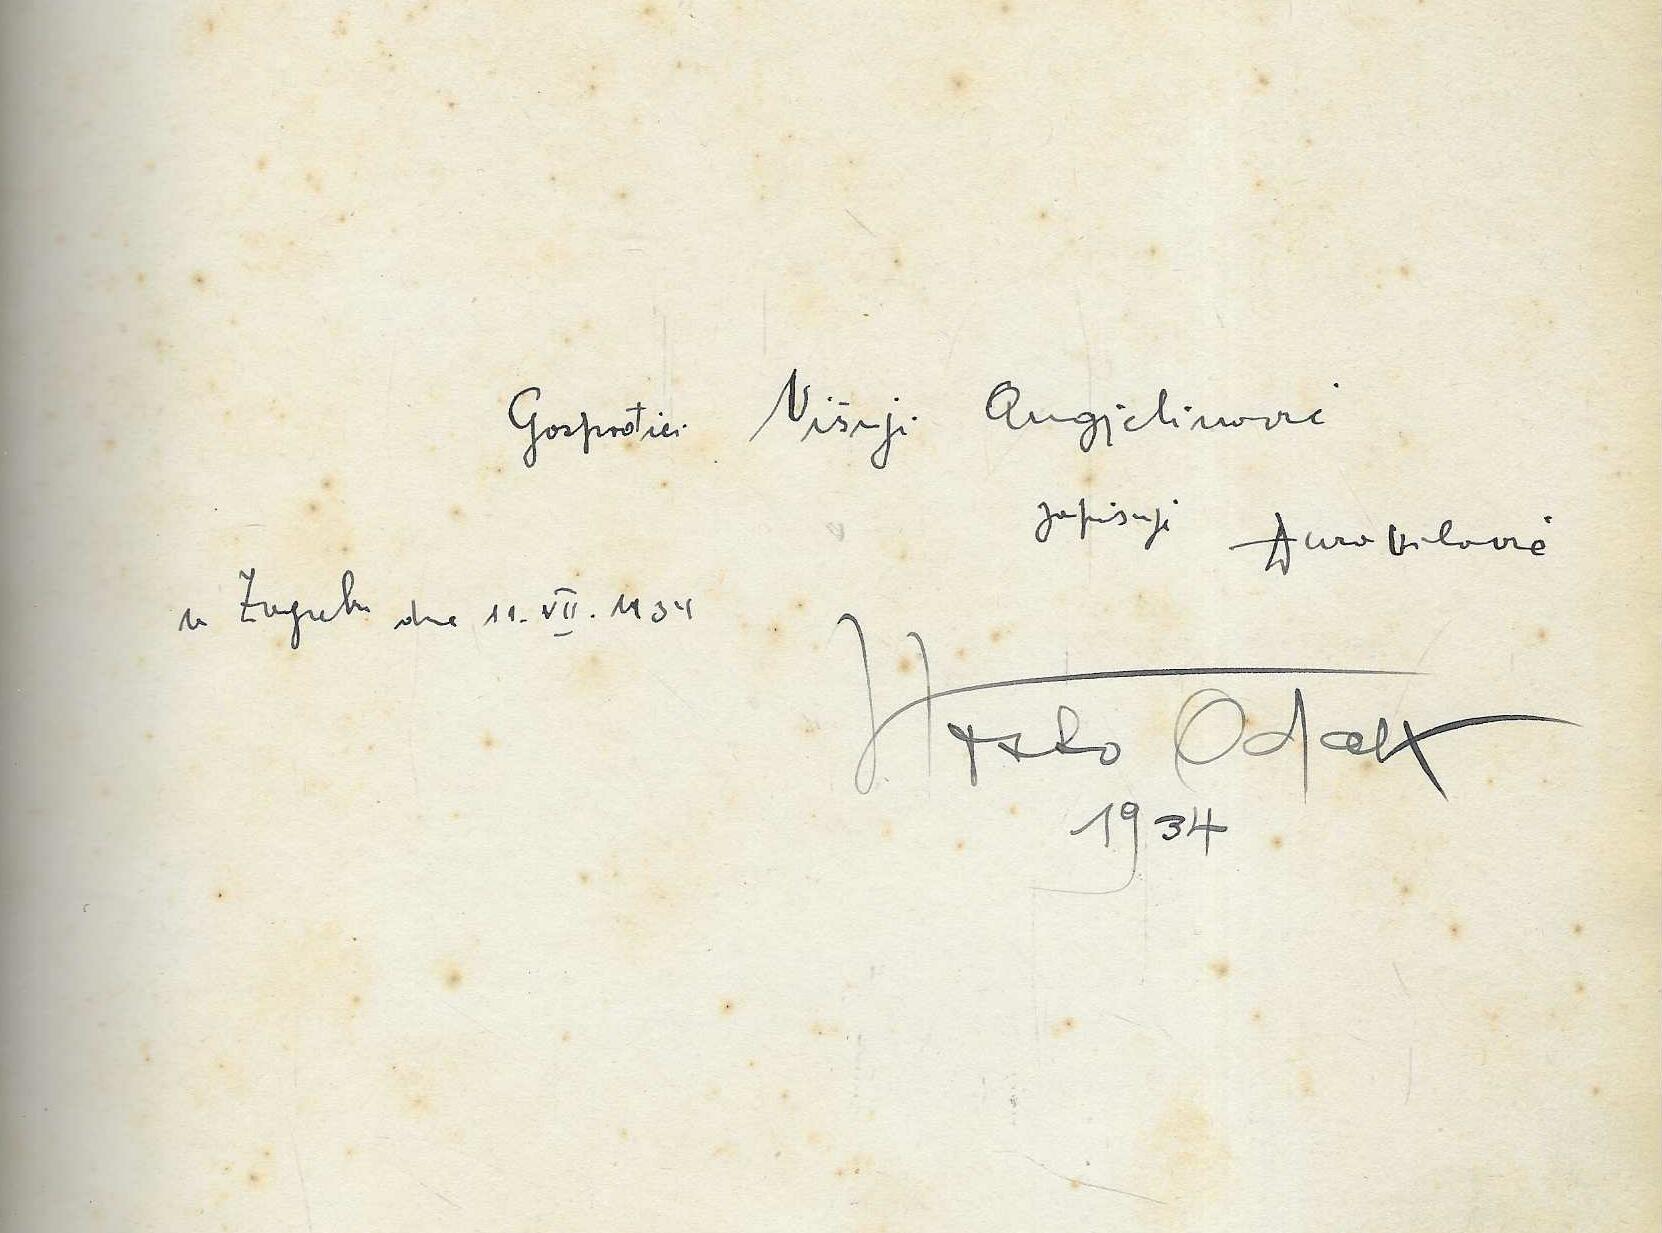 Gospođici Višnji Angjelinović
zapisuje Đuro Vilović
u Zagrebu dne 11. VII. 1934
Vasko Odak
1934